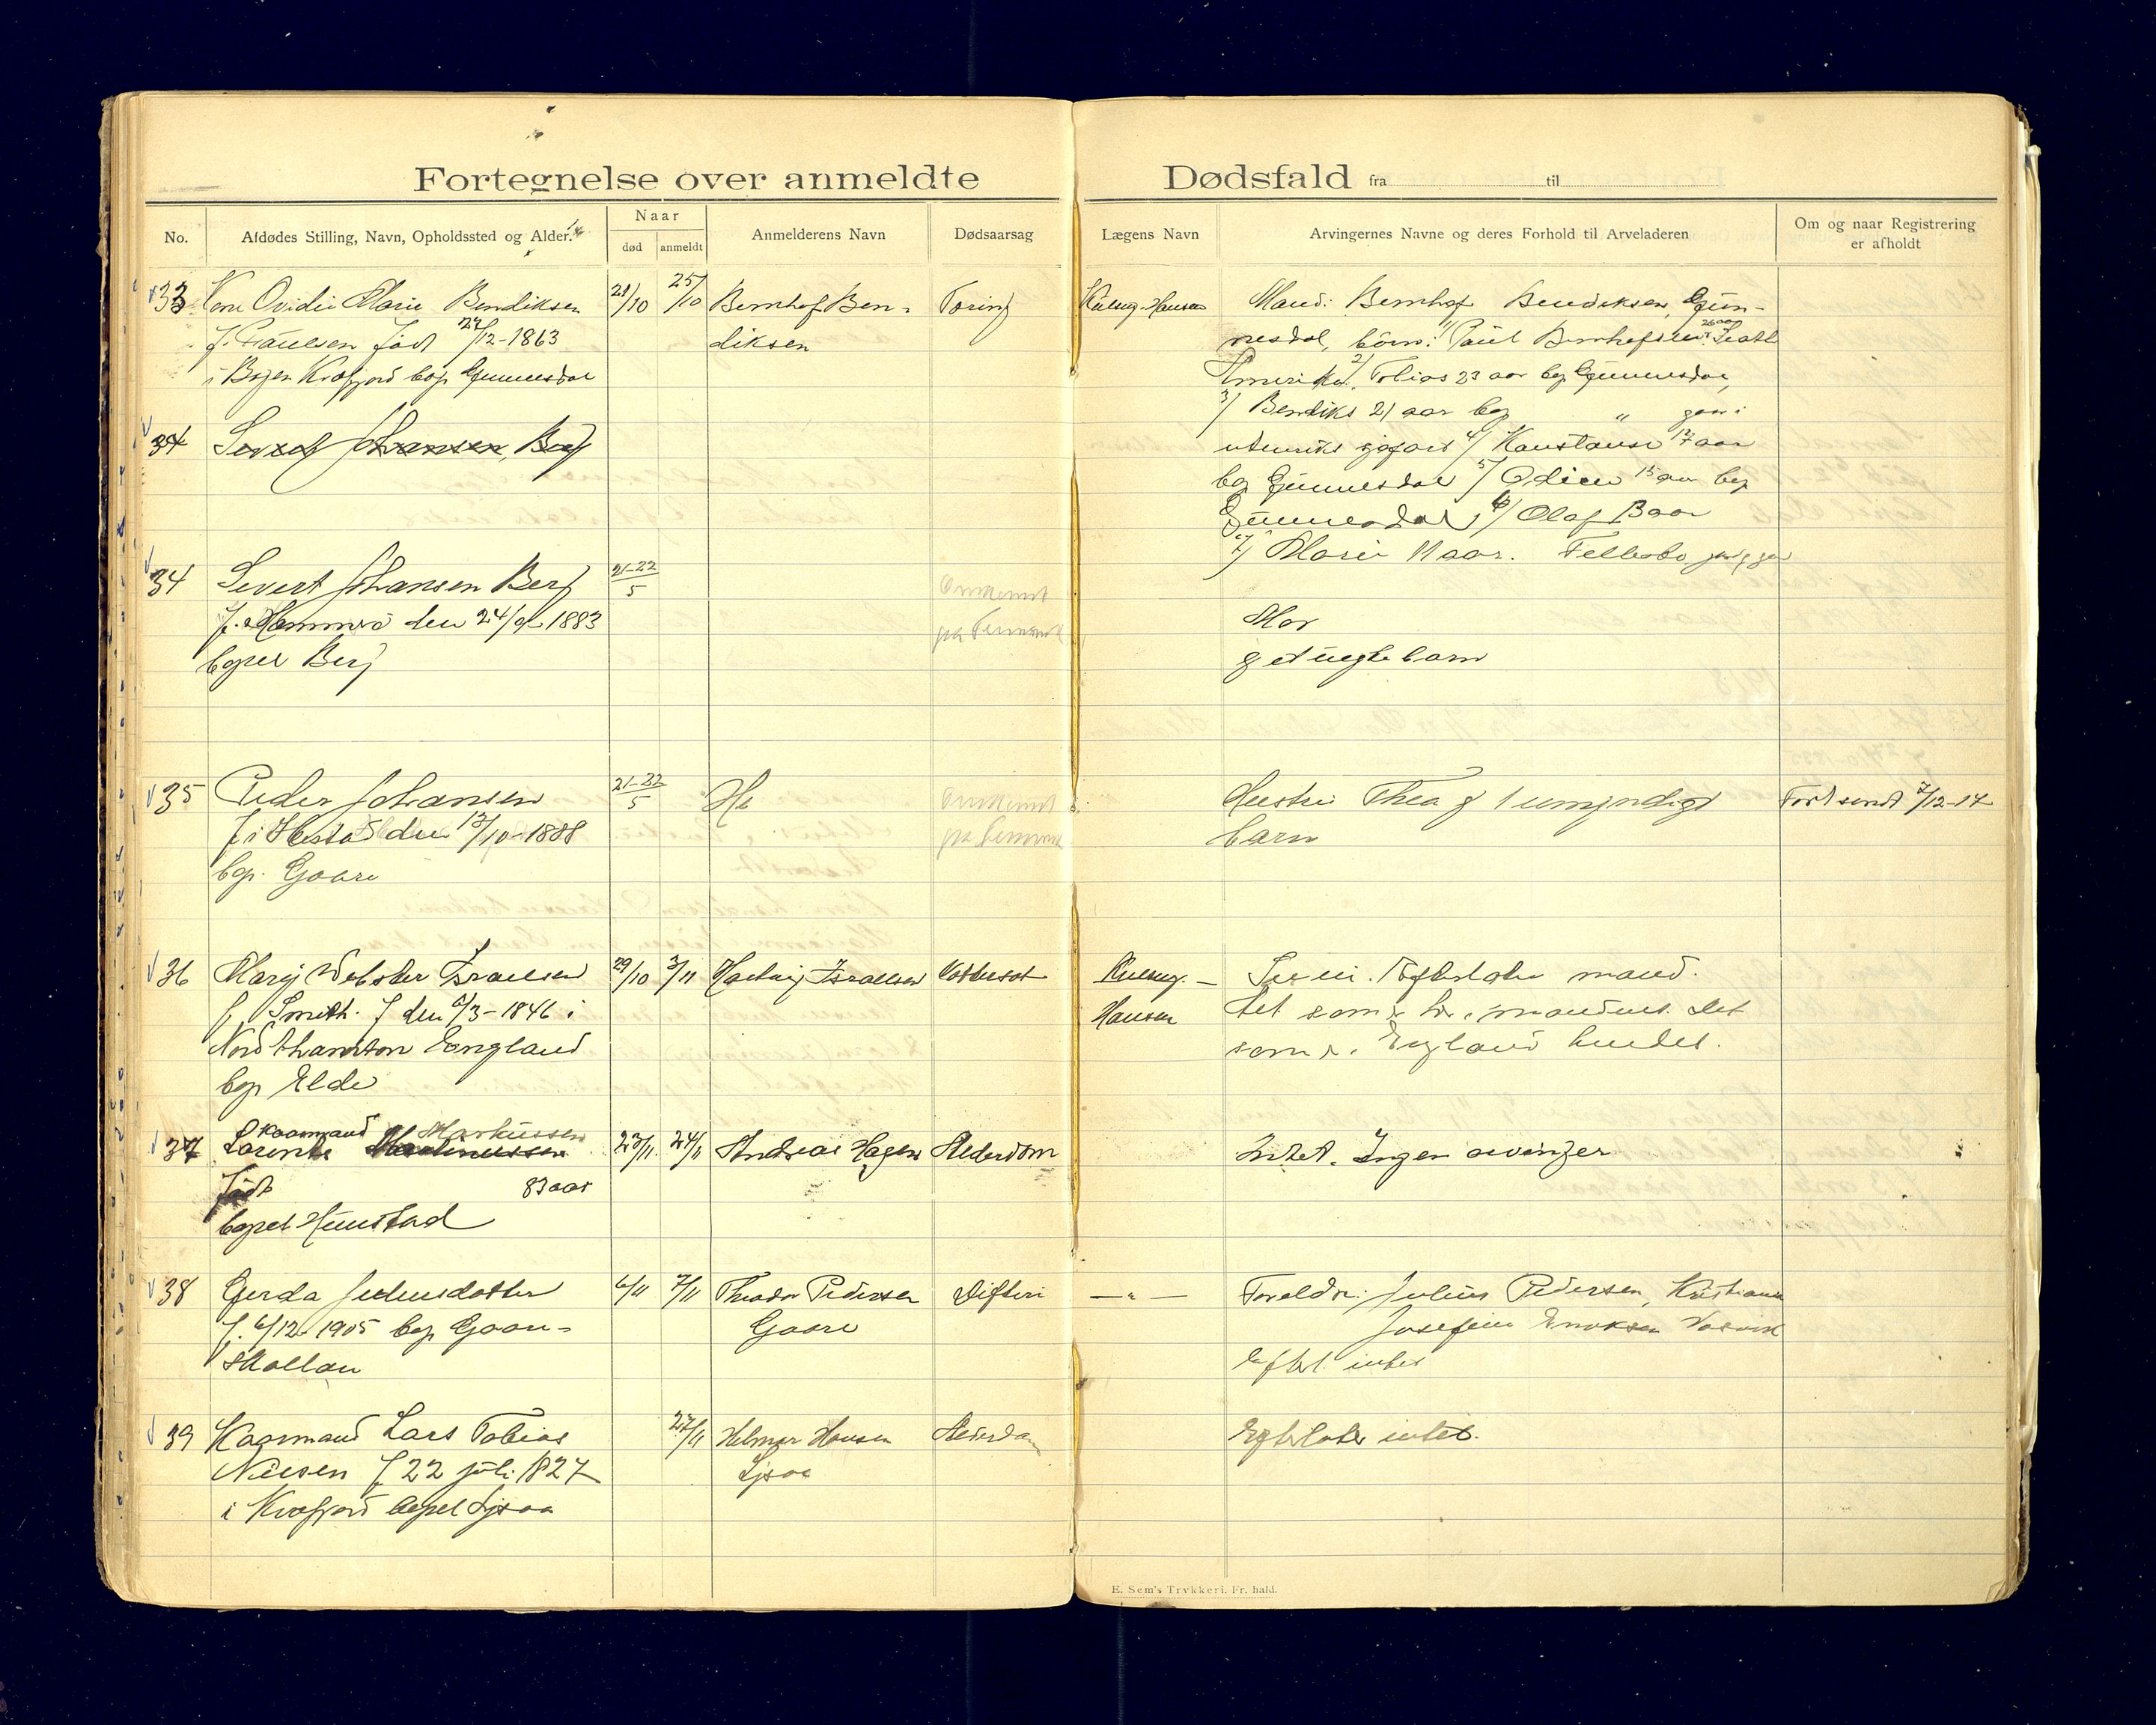 Fortegnelse over anmeldte Dødsfald fra til
No.
Afdødes Stilling, Navn, Opholdssted og Alder.
Naar
død
anmeldt
Anmelderens Navn
Dødsaarsag
Lægens Navn
Arvingernes Navne og deres Forhold til Arveladeren
Om og naar Registrering
er afholdt
33 Kone Ovidie Marie Bendiksen
f. Paulsen født 27/12-1863
i Bogen Kvæfjord bop Gummesdal
21/10 25/10
Bernhof Ben-
diksen
Tæring
Kulseng-Hansen
Mand: Bernhof Bendiksen, Gum-
mesdal, børn: 1/ Paul Bernhofsen 26 aar Seatle
Amerika. 2/ Tobias 23 aar bop Gummesdal,
3/ Bendiks 21 aar bop " gaar i
utenriks sjøfart 4/ Konstanse 17 aar
bop Gummesdal 5/ Odin 15 aar bop
Gummesdal, 6/ Olaf 13 aar
7/ Marie 11 aar. Fellesbo
34 Severt Johansen, Berg
34 Severt Johansen Berg
f. Hammerø den 24/9 1883
bopel Berg
21-22/5
Omkommet
paa Finmark
Mor
g et uegte barn
35 Peder Johansen
f i Hestad den 13/10-1888
bop. Gaare
21-22/5
Omkommet
paa Finmark
Hustru Thea g 1 umyndigt
barn
Fort sendt 7/12-17
36 Mary Webster Israelsen
f. Smith. f den 9/3-1846 i
Nordthamton England
bop Elde
29/10 3/11
Hartvig Israelsen
Vattersot
Kulseng-
Hansen
Efterlater mand.
Det som er her er mandens. Det
som er i England hendes.
37 Kaarmand Markussen
Lorents Martinussen
født 83 aar
bopel Hunstad
23/11 24/11
Andreas Hagen
Alderdom
Intet. Ingen arvinger
38 Gerda Juliusdatter
f. 6/12-1905 bop Gaare-
skollan
6/11 7/11
Theodor Pedersen
Gaare
Difteri
— " —
Foreldre: Julius Pedersen, Kristiane
Josefine Enoksen Vasvik
Efterl. intet
39 Kaarmand Lars Tobias
Nilsen f 22 juli 1827
i Kvæfjord bopel Lysaa
27/11
Helmer Hansen
Lysaa
Alderdom
Efterlater intet.
E. Sem's Trykkeri. Fr. hald.